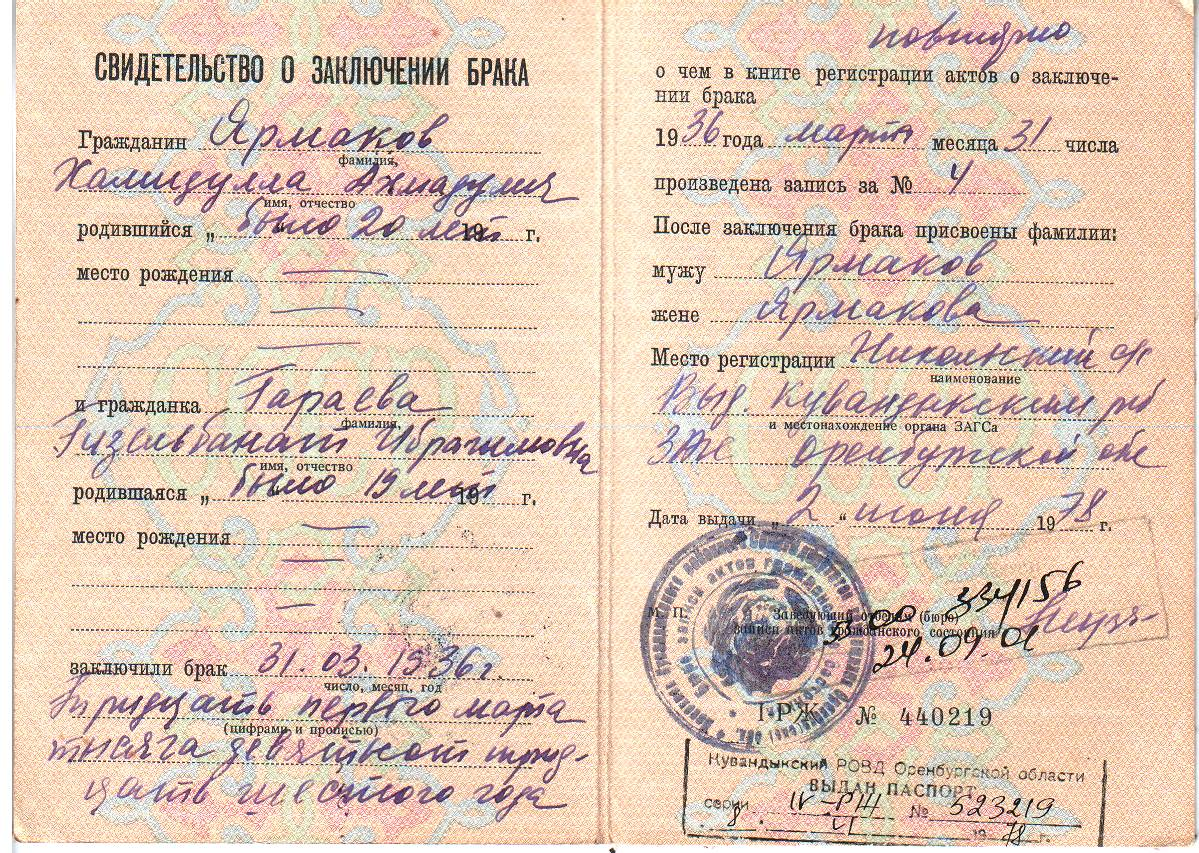 СВИДЕТЕЛЬСТВО О ЗАКЛЮЧЕНИИ БРАКА
Гражданин Ярмаков
фамилия,
Хамидулла Ахмадулич
имя, отчество
родившийся „ было 20 лет 19 г.
место рождения
и гражданка Гараева
фамилия,
Гизельбанат Ибрагимовна
имя, отчество
родившаяся „ было 19 лет 19 г.
место рождения
заключили брак 31.03.1936 г.
число, месяц, год
тридцать первого марта
(цифрами и прописью)
тысяча девятьсот трид-
цать шестого года
повторно
о чем в книге регистрации актов о заключе-
нии брака
1936 года марта месяца 31 числа
произведена запись за № 4
После заключения брака присвоены фамилии:
мужу Ярмаков
жене Ярмакова
Место регистрации Никольский с/с
наименование
Выд. Кувандыкским р/б
и местонахождение органа ЗАГСа
ЗАГС Оренбургской обл
Дата выдачи „ 2 “ июня 1978 г.
М. П.
Заведующий отделом (бюро)
записи актов гражданского состояния
334156
24.09.01
I-РЖ № 440219
Кувандыкский РОВД Оренбургской области
ВЫДАН ПАСПОРТ
серии IV-РЖ № 523219
8. VI 1978 г.